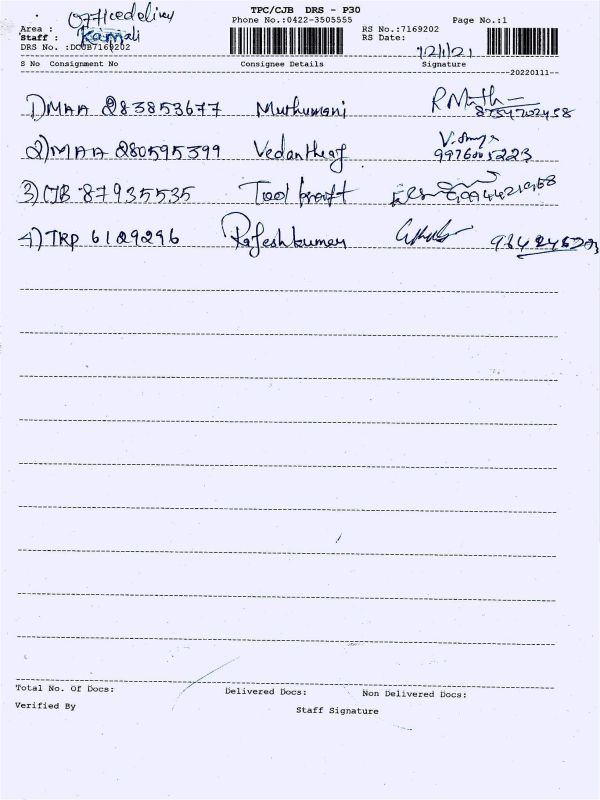 TPC/CJB DRS - P30
Officedelivery
Phone No.:0422-3505555 Page No.:1
Area : RS No.:7169202
Staff : Kamali RS Date: 12/1/21
DRS No. :DCJB7169202
S No Consignment No Consignee Details Signature
20220111
1) MAA 283853677 Muthumani R Muth 8754702458
2) MAA 280595399 9976005223
3) CJB 87935535 Tool Craft
4) TRP 6129296 Rajeshkumar
Total No. Of Docs: Delivered Docs: Non Delivered Docs:
Verified By Staff Signature